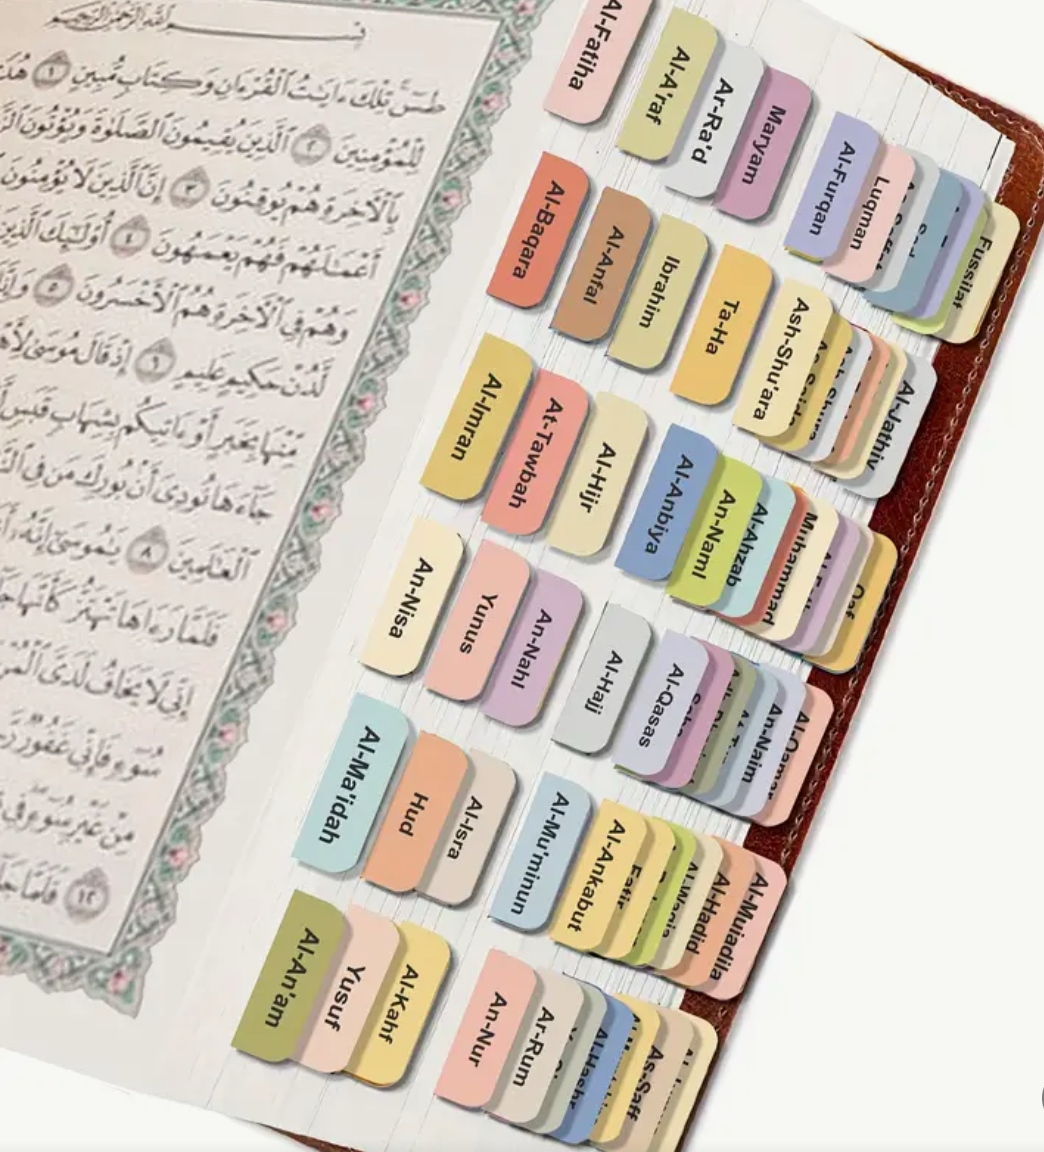 بِسْمِ ٱللَّهِ ٱلرَّحْمَٰنِ ٱلرَّحِيمِ
طسٓ تِلْكَ ءَايَٰتُ ٱلْقُرْءَانِ وَكِتَابٍ مُّبِينٍ ١
لِلْمُؤْمِنِينَ ٢ ٱلَّذِينَ يُقِيمُونَ ٱلصَّلَوٰةَ وَيُؤْتُونَ
بِٱلْأَخِرَةِ هُمْ يُوقِنُونَ ٣ إِنَّ ٱلَّذِينَ لَا يُؤْمِنُونَ
أَعْمَٰلَهُمْ فَهُمْ يَعْمَهُونَ ٤ أُوْلَٰٓئِكَ ٱلَّذِينَ
وَهُمْ فِى ٱلْأَخِرَةِ هُمُ ٱلْأَخْسَرُونَ ٥
لَّدُنْ حَكِيمٍ عَلِيمٍ ٦ إِذْ قَالَ مُوسَىٰ
مِّنْهَا بِخَبَرٍ أَوْ ءَاتِيكُم بِشِهَابٍ قَبَسٍ
جَآءَهَا نُودِىَ أَنۢ بُورِكَ مَن فِى
ٱلْعَٰلَمِينَ ٨ يَٰمُوسَىٰٓ إِنَّهُۥٓ
فَلَمَّا رَءَاهَا تَهْتَزُّ كَأَنَّهَا
إِنِّى لَا يَخَافُ لَدَىَّ
سُوٓءٍ فَإِنِّى غَفُورٌ
مِنْ غَيْرِ سُوٓءٍ فِى
١٢ فَلَمَّا
Al-Fatiha
Al-A'raf
Ar-Ra'd
Maryam
Al-Furqan
Luqman
Fussilat
Al-Baqara
Al-Anfal
Ibrahim
Ta-Ha
Ash-Shu'ara
Al-Jathiy
Al-Imran
At-Tawbah
Al-Hijr
Al-Anbiya
An-Naml
Al-Ahzab
Muhammad
Qaf
An-Nisa
Yunus
An-Nahl
Al-Hajj
Al-Qasas
An-Najm
Al-Qamar
Al-Ma'idah
Hud
Al-Isra
Al-Mu'minun
Al-Ankabut
Fatir
Al-Waqia
Al-Hadid
Al-Mujadila
Al-An'am
Yusuf
Al-Kahf
An-Nur
Ar-Rum
Al-Hashr
As-Saff